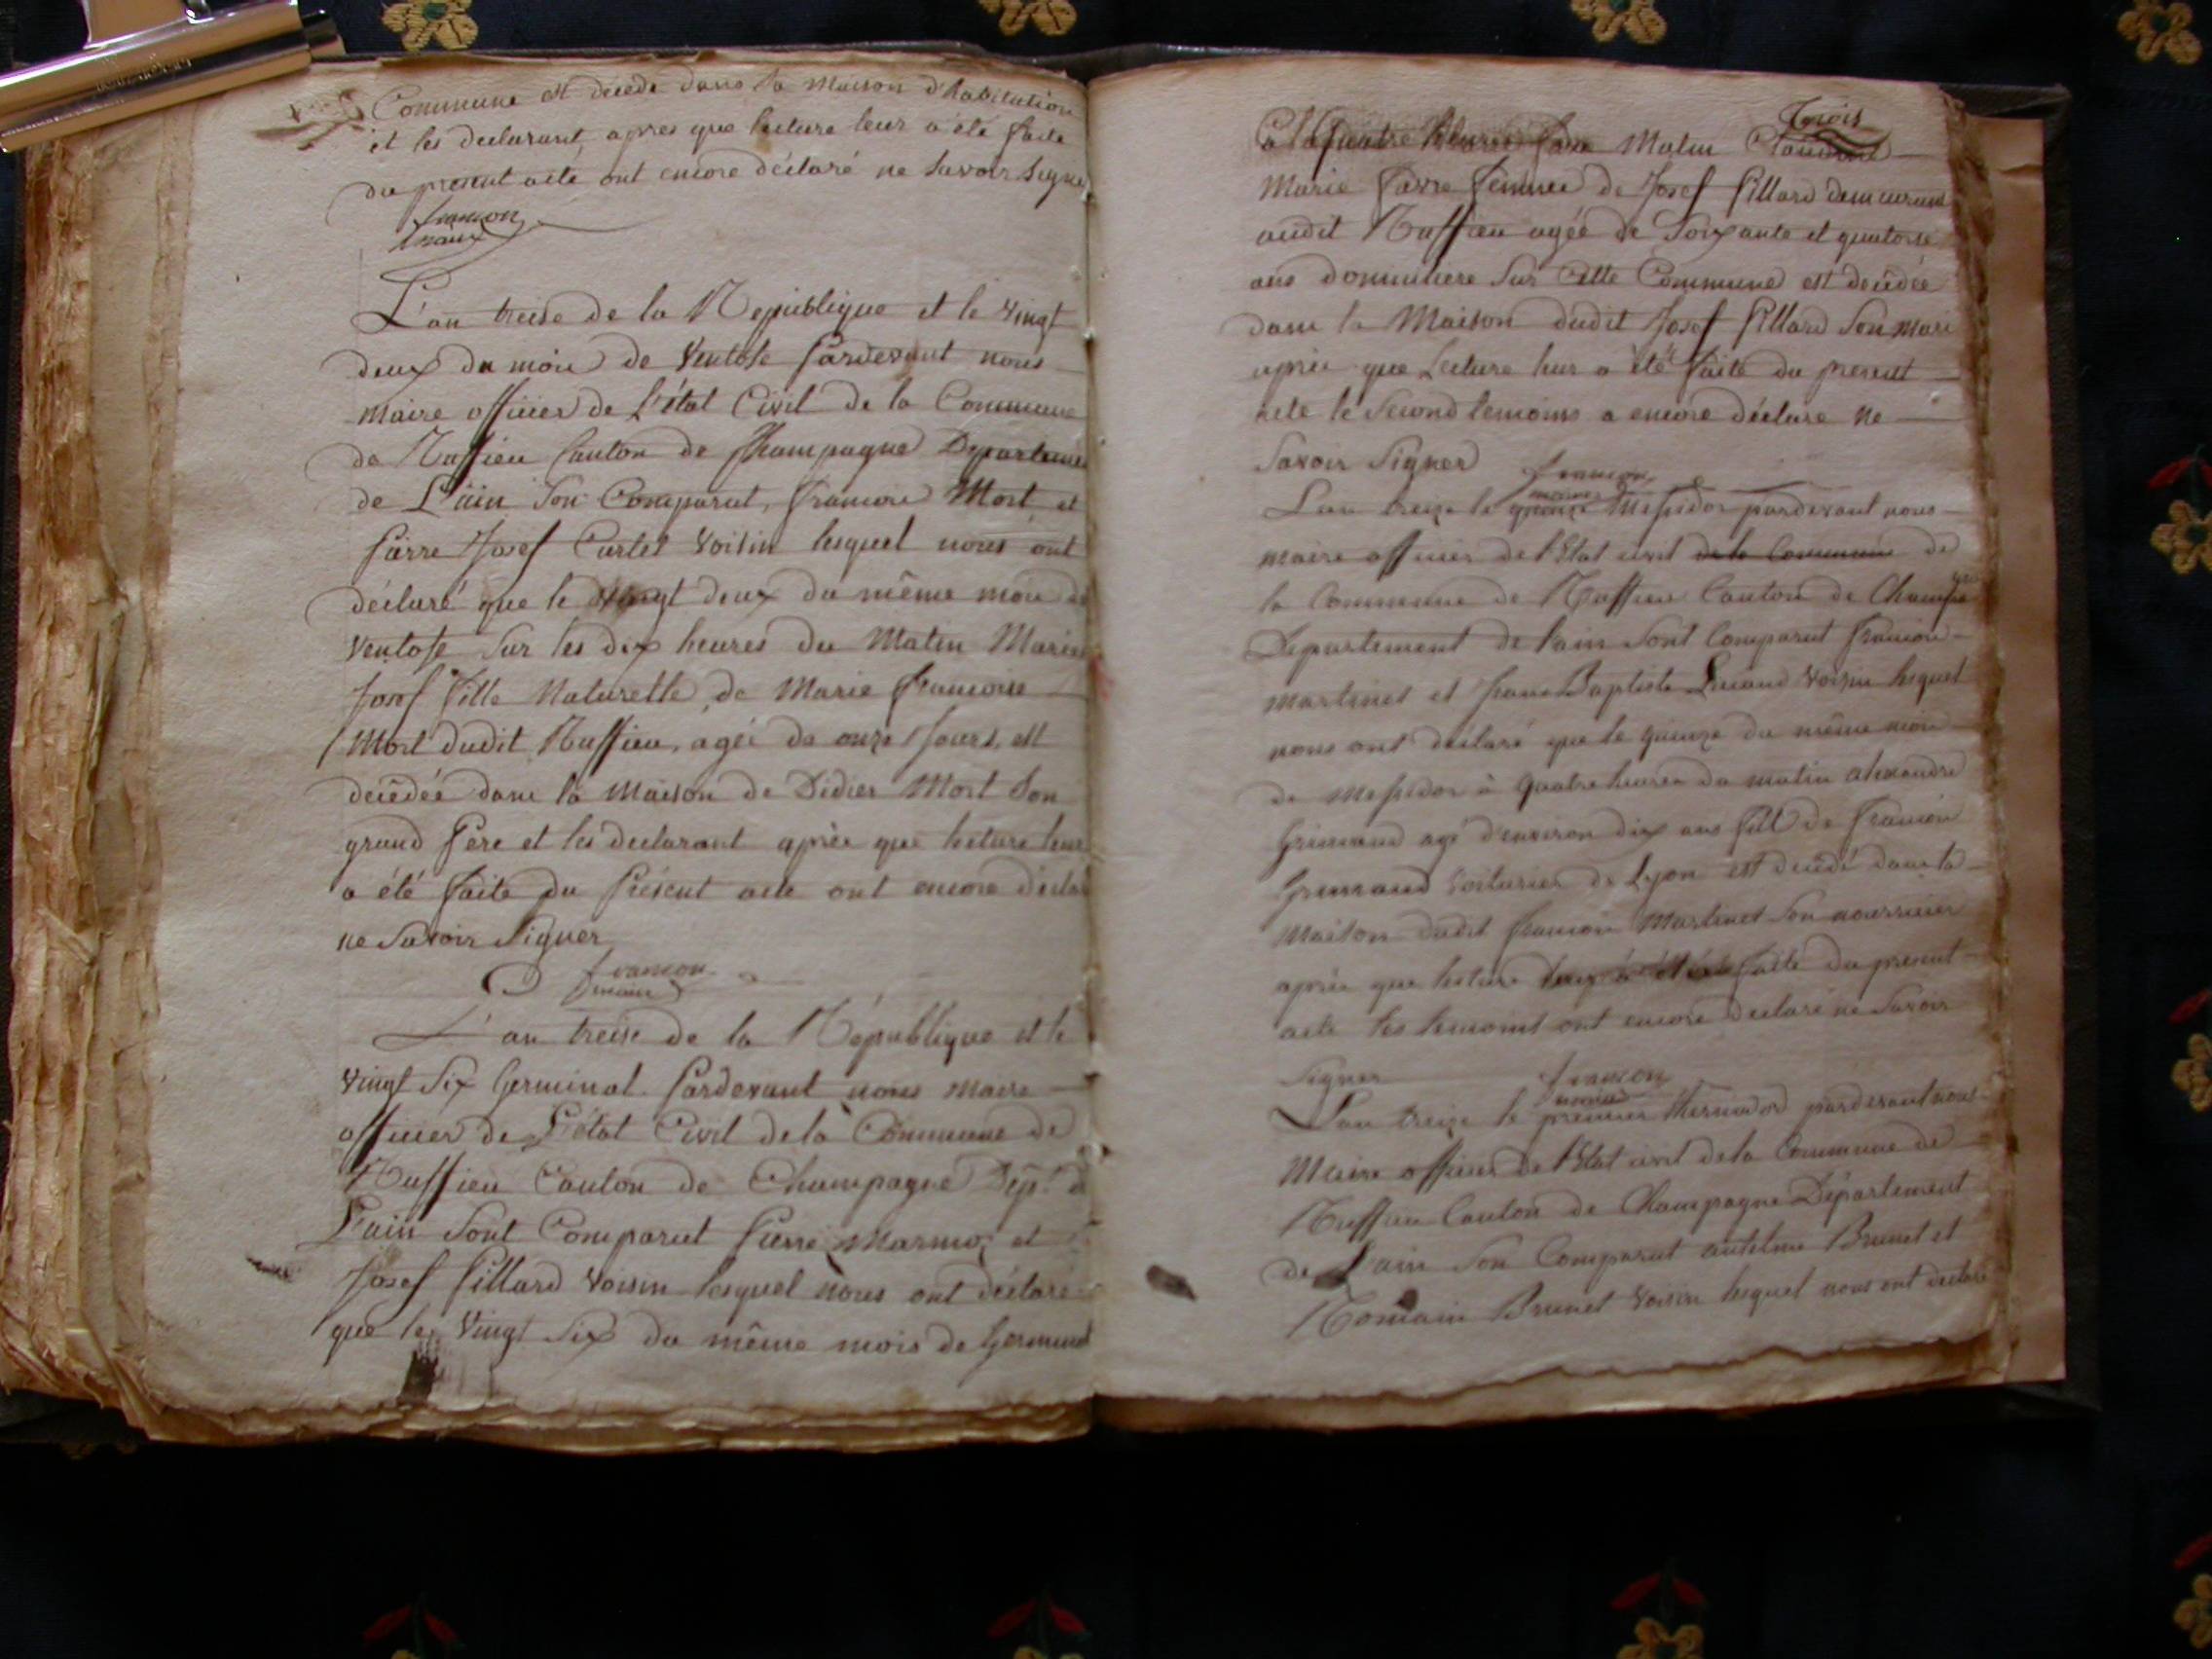 Commune est décédé dans sa maison d'habitation
et les declarant, apres que lecture leur a été faite
du present acte ont encore déclaré ne Savoir Signe
francon
maire
L'an treise de la Republique et le vingt
deux du mois de Ventose pardevant nous
maire officier de L'état Civil de la Commune
de Ruffieu Canton de Champagne Departeme
de L'ain Son Comparut, francois Mort et
pierre Josef Carlet Voisin lesquel nous ont
déclaré que le Vingt deux du même mois de
Ventose Sur les dix heures du Matin Marie
Josef fille Naturelle, de Marie francoise
Mort dudit Ruffieu, agée de onze Jours, est
décédée dans la Maison de Didier Mort Son
grand Pere et les declarant après que lecture leur
a été faite du présent acte ont encore déclar
ne Savoir Signer
francon
maire
L'an treise de la République et le
vingt Six Germinal Pardevant nous maire
officier de L'état Civil de la Commune de
Ruffieu Canton de Champagne Dept. d
L'ain Sont Comparut pierre Marmo et
Josef Pillard Voisin lesquel nous ont déclaré
que le Vingt Six du même mois de Germinal
Trois
à quatre heures Matin
Marie femme de Josef Pillard demeurant
audit Ruffieu agée de Soixante et quatorse
ans Sur Cette Commune est décédée
dans la Maison dudit Josef Pillard Son Mari
après que Lecture leur a été faite du present
acte le Second temoins a encore déclare ne
Savoir Signer
francon
maire
L'an treize le quinze Messidor pardevant nous
maire officier de l'Etat civil de la Commune de
la Commune de Ruffieu Canton de Champagne
Departement de l'ain Sont Comparut francois
martinet et Jean Baptiste voisin lesquel
nous ont déclaré que le quinze du même mois
de messidor à quatre heures du matin alexandre
Grimand agé d'environ dix ans fils de francois
Grimand voiturier de Lyon est décédé dans la
maison dudit francois Martinet Son nourricier
après que lecture leur à été faite du present
acte les temoins ont encore déclaré ne Savoir
Signer
francon
maire
L'an treize le premier thermidor pardevant nous
Maire officier de l'Etat civil de la Commune de
Ruffieu Canton de Champagne Département
de L'ain Son Comparut antelme Brunet et
Romain Brunet voisin lesquel nous ont déclaré